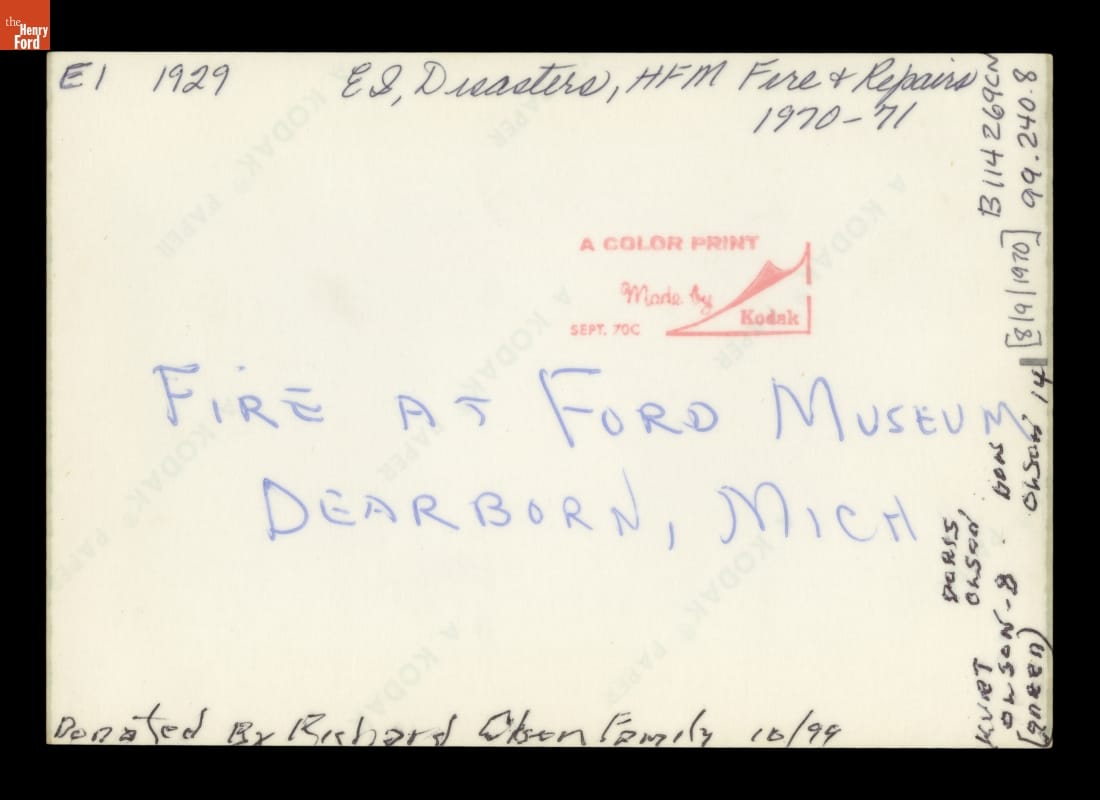 the
Henry
Ford
EI 1929
EI, Disasters, HFM Fire & Repairs
1970-71
B114269CN
99.240.8
[8/9/1970]
A COLOR PRINT
Made by
Kodak
SEPT. 70C
FIRE AT FORD MUSEUM
DEARBORN, MICH
DORIS,
OLSON
DON
OLSON 14
KURT
OLSON-8
(GREEN)
Donated By Richard Olson Family 10/99
A KODAK® PAPER
A KODAK® PAPER
A KODAK® PAPER
A KODAK® PAPER